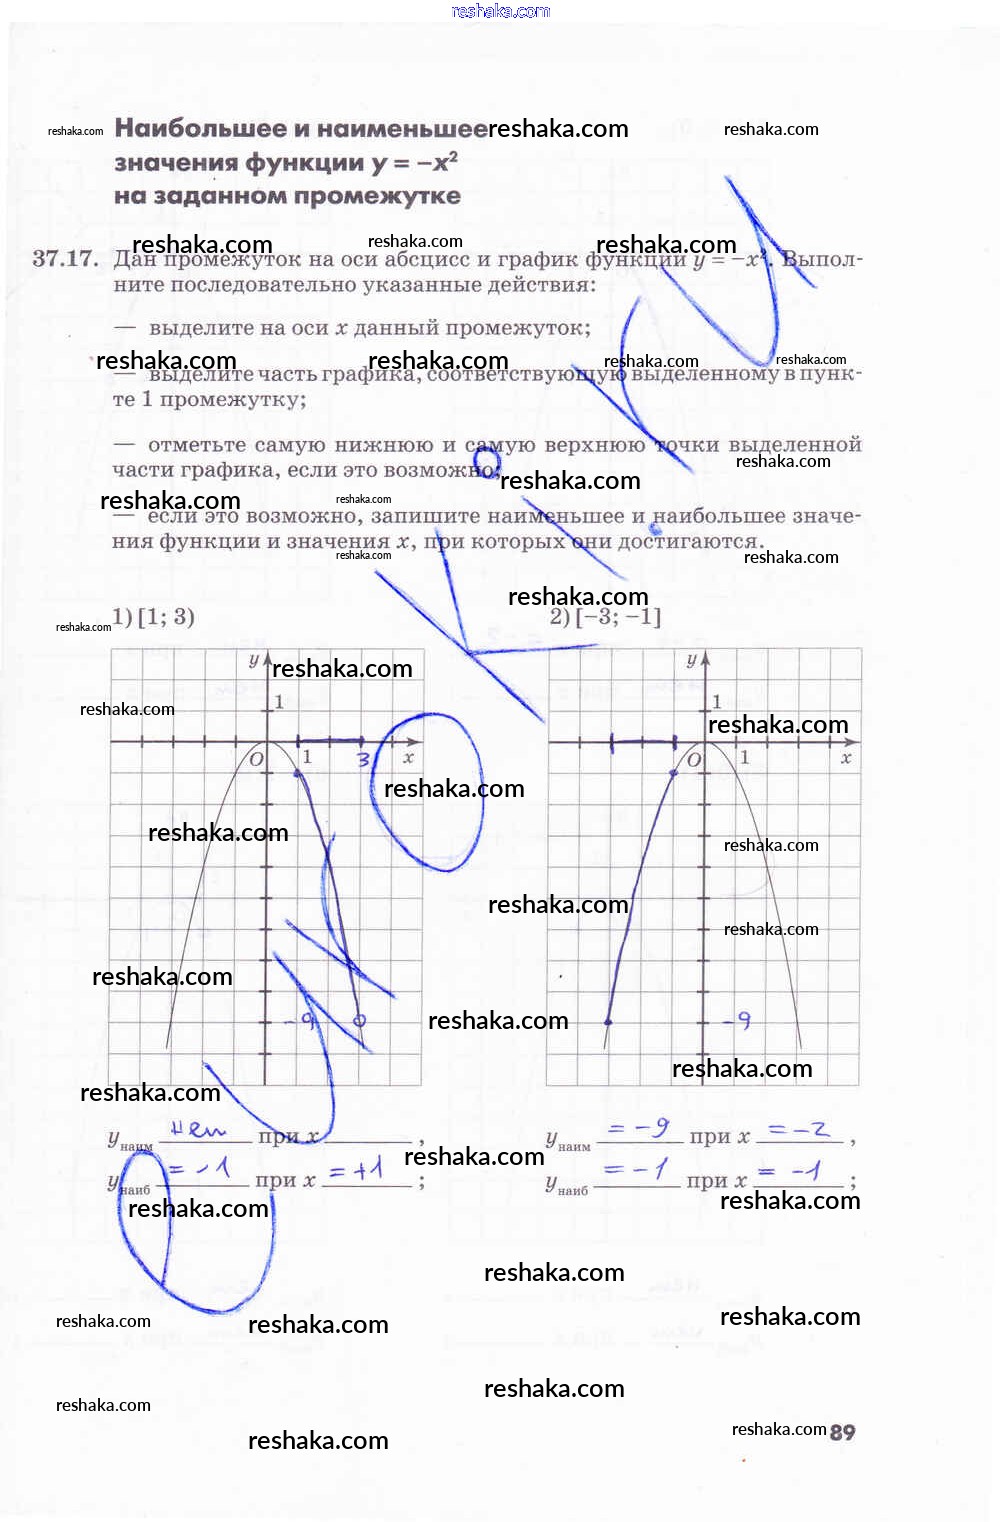 reshaka.com
reshaka.com Наибольшее и наименьшее reshaka.com reshaka.com
значения функции y = −x²
на заданном промежутке
reshaka.com reshaka.com reshaka.com
37.17. Дан промежуток на оси абсцисс и график функции y = −x². Выпол-
ните последовательно указанные действия:
— выделите на оси x данный промежуток;
reshaka.com reshaka.com reshaka.com reshaka.com
— выделите часть графика, соответствующую выделенному в пунк-
те 1 промежутку;
— отметьте самую нижнюю и самую верхнюю точки выделенной
reshaka.com
части графика, если это возможно;
reshaka.com
reshaka.com reshaka.com
— если это возможно, запишите наименьшее и наибольшее значе-
ния функции и значения x, при которых они достигаются.
reshaka.com reshaka.com
reshaka.com
1) [1; 3) 2) [−3; −1]
reshaka.com
y y
reshaka.com
1 1
reshaka.com reshaka.com
O 1 3 x O 1 x
reshaka.com
reshaka.com reshaka.com
reshaka.com
reshaka.com
reshaka.com
-9 reshaka.com -9
reshaka.com
reshaka.com
yнаим нет при x , yнаим = -9 при x = -2 ,
reshaka.com
yнаиб = -1 при x = +1 ; yнаиб = -1 при x = -1 ;
reshaka.com reshaka.com
reshaka.com
reshaka.com reshaka.com reshaka.com
reshaka.com
reshaka.com
reshaka.com 89
reshaka.com